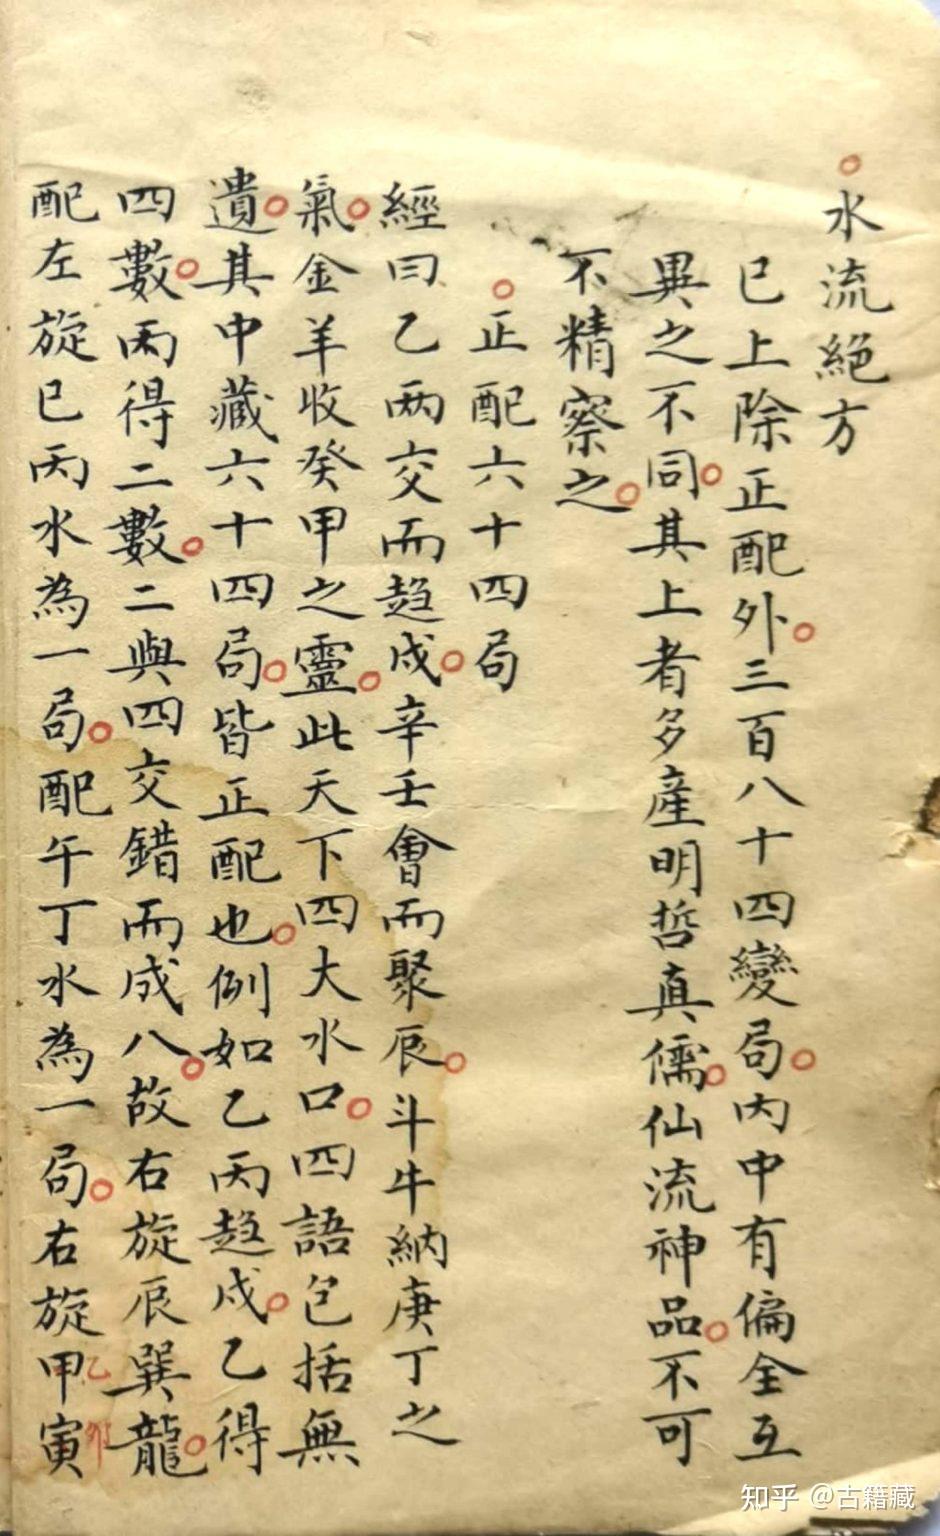 。水流絕方
已上除正配外。三百八十四變局。內中有偏全互
異之不同。其上者多產明哲真儒。仙流神品。不可
不精察之。
。正配六十四局
經曰乙丙交而趍戍。辛壬會而聚辰。斗牛納庚丁之
氣。金羊收癸甲之靈。此天下四大水口。四語包括無
遺。其中藏六十四局。皆正配也。例如乙丙趍戍。乙得
四數。丙得二數。二與四交錯而成八。故右旋辰巽龍。
配左旋巳丙水為一局。配午丁水為一局。右旋甲寅
乙卯
知乎 @古籍藏